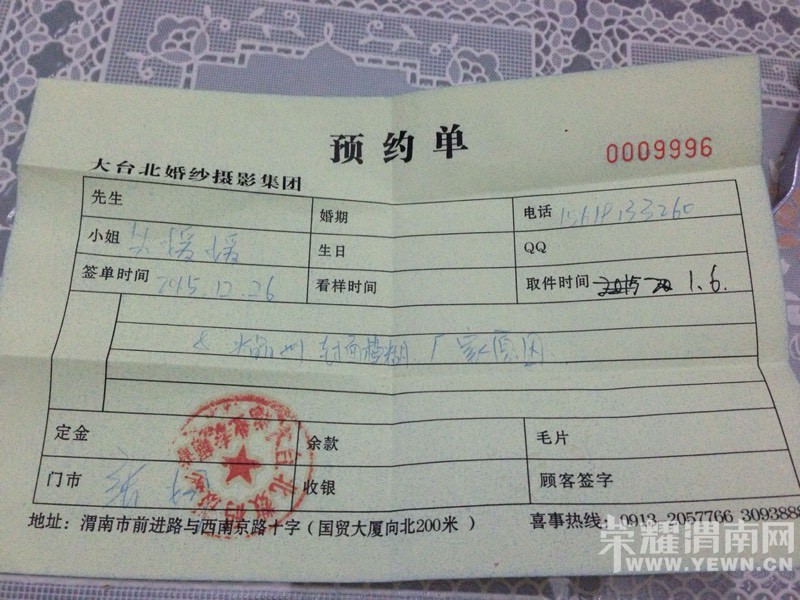 预约单
0009996
大台北婚纱摄影集团
先生 婚期 电话
小姐 生日 QQ
签单时间 2015.12.26 看样时间 取件时间 1.6.
封面模糊. 厂家原因.
定金 余款 毛片
门市 收银 顾客签字
地址：渭南市前进路与西南京路十字（国贸大厦向北200米） 喜事热线：0913-2057766 3093888
荣耀渭南网
WWW.YEWN.CN